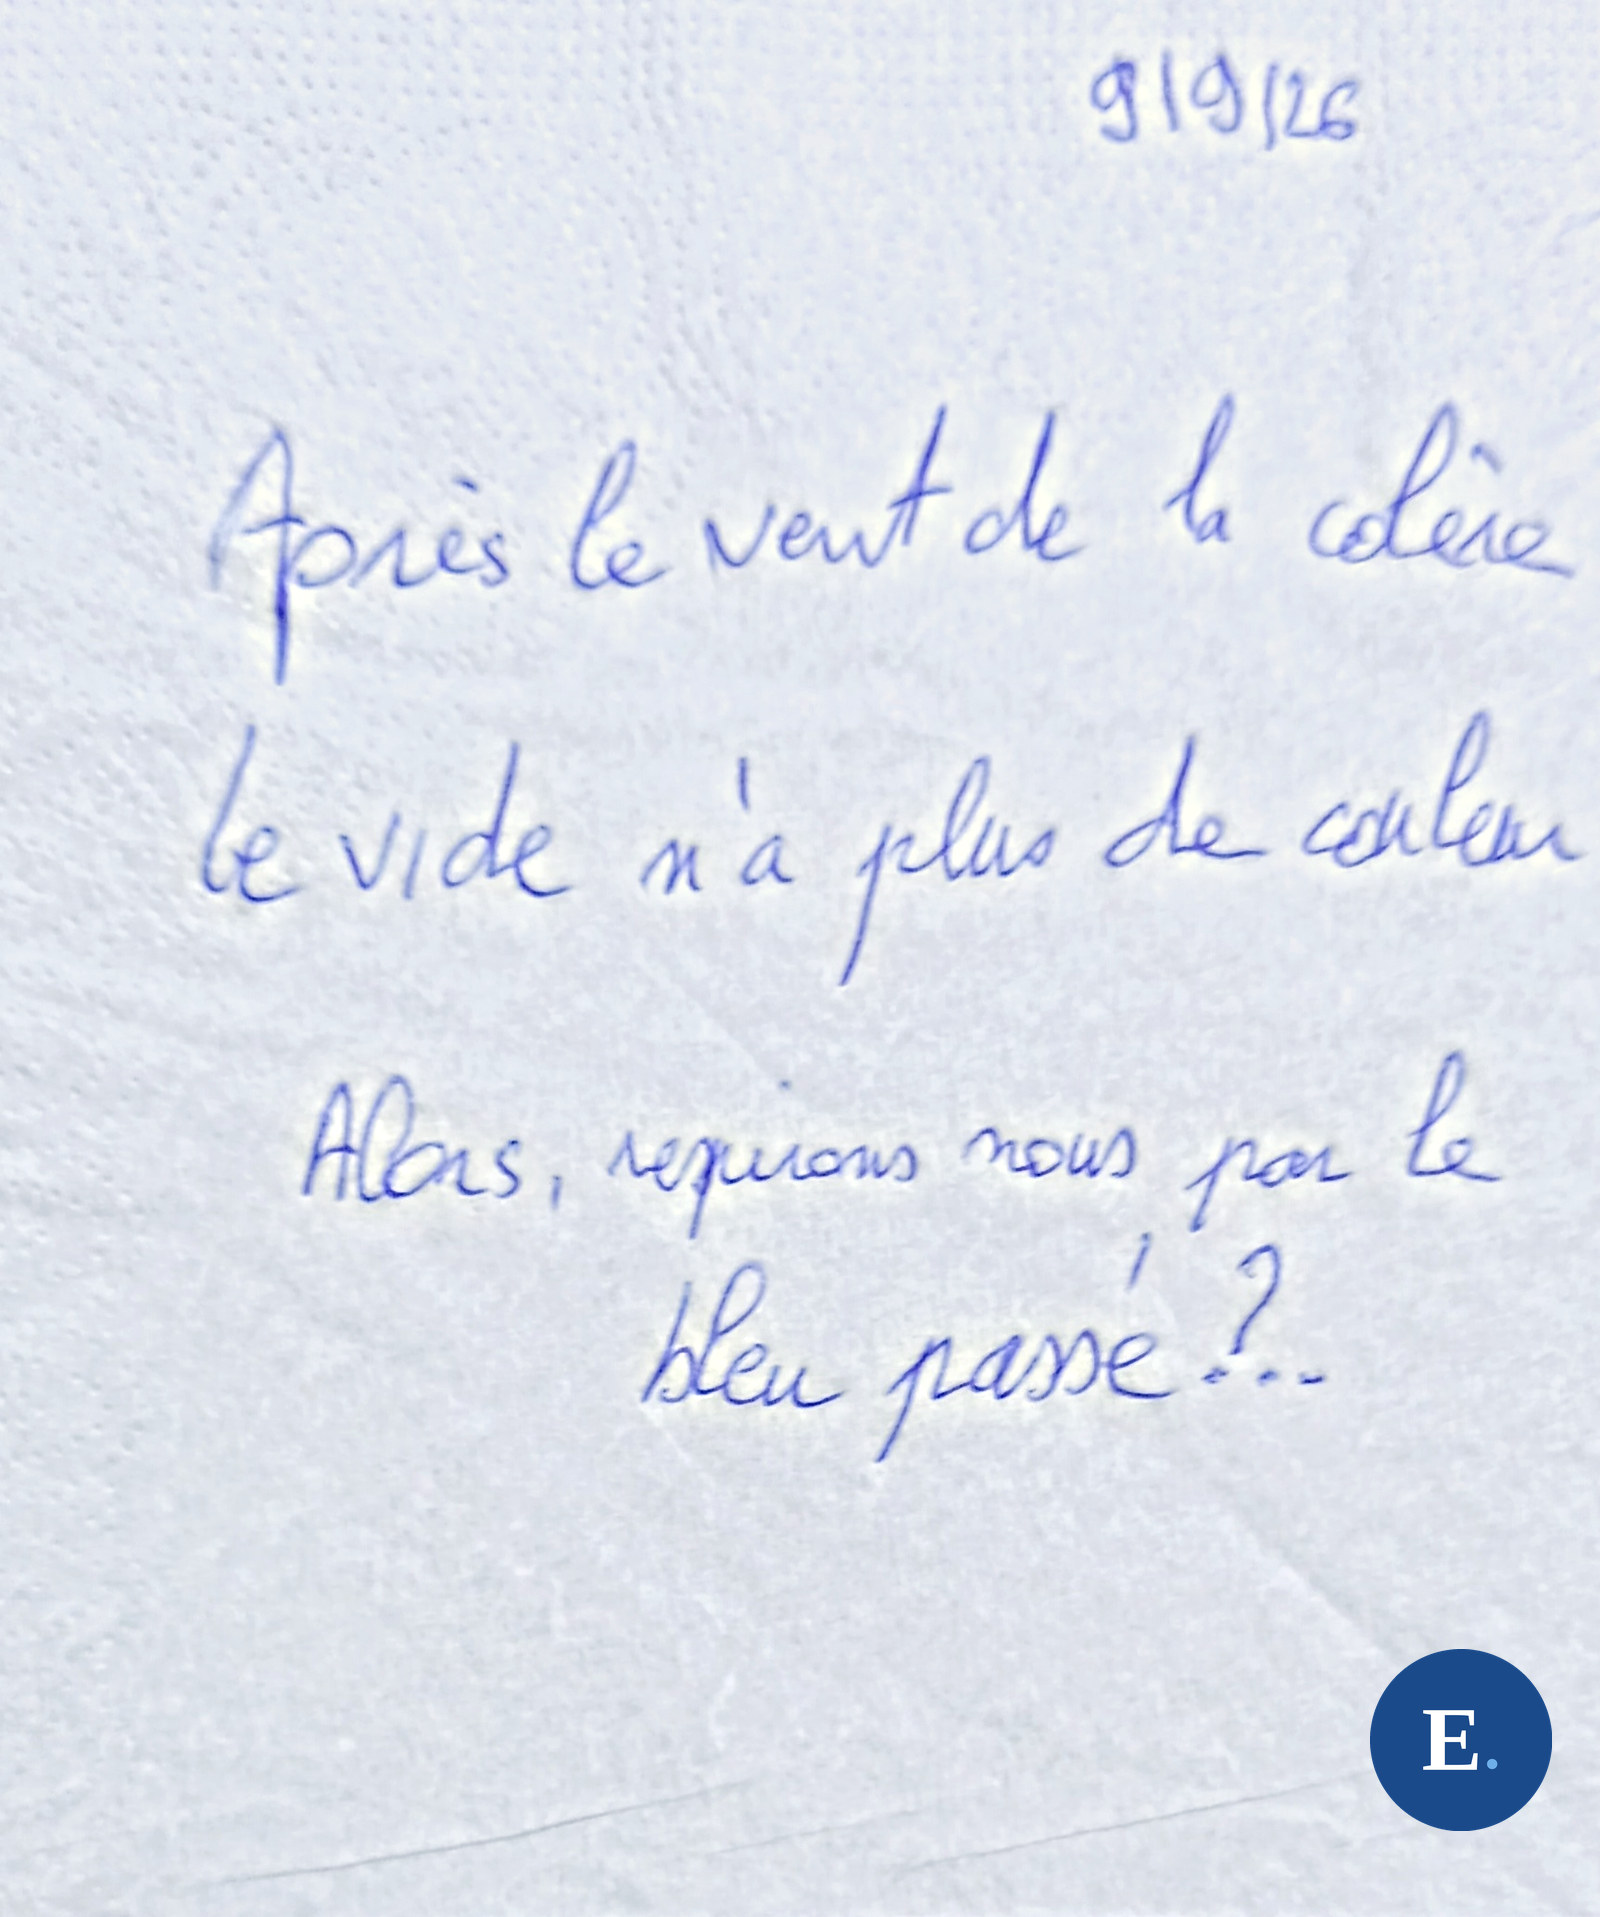 9/9/26
Après le vent de la colère
le vide n'a plus de couleur
Alors, respirons nous par le
bleu passé ?...
E.